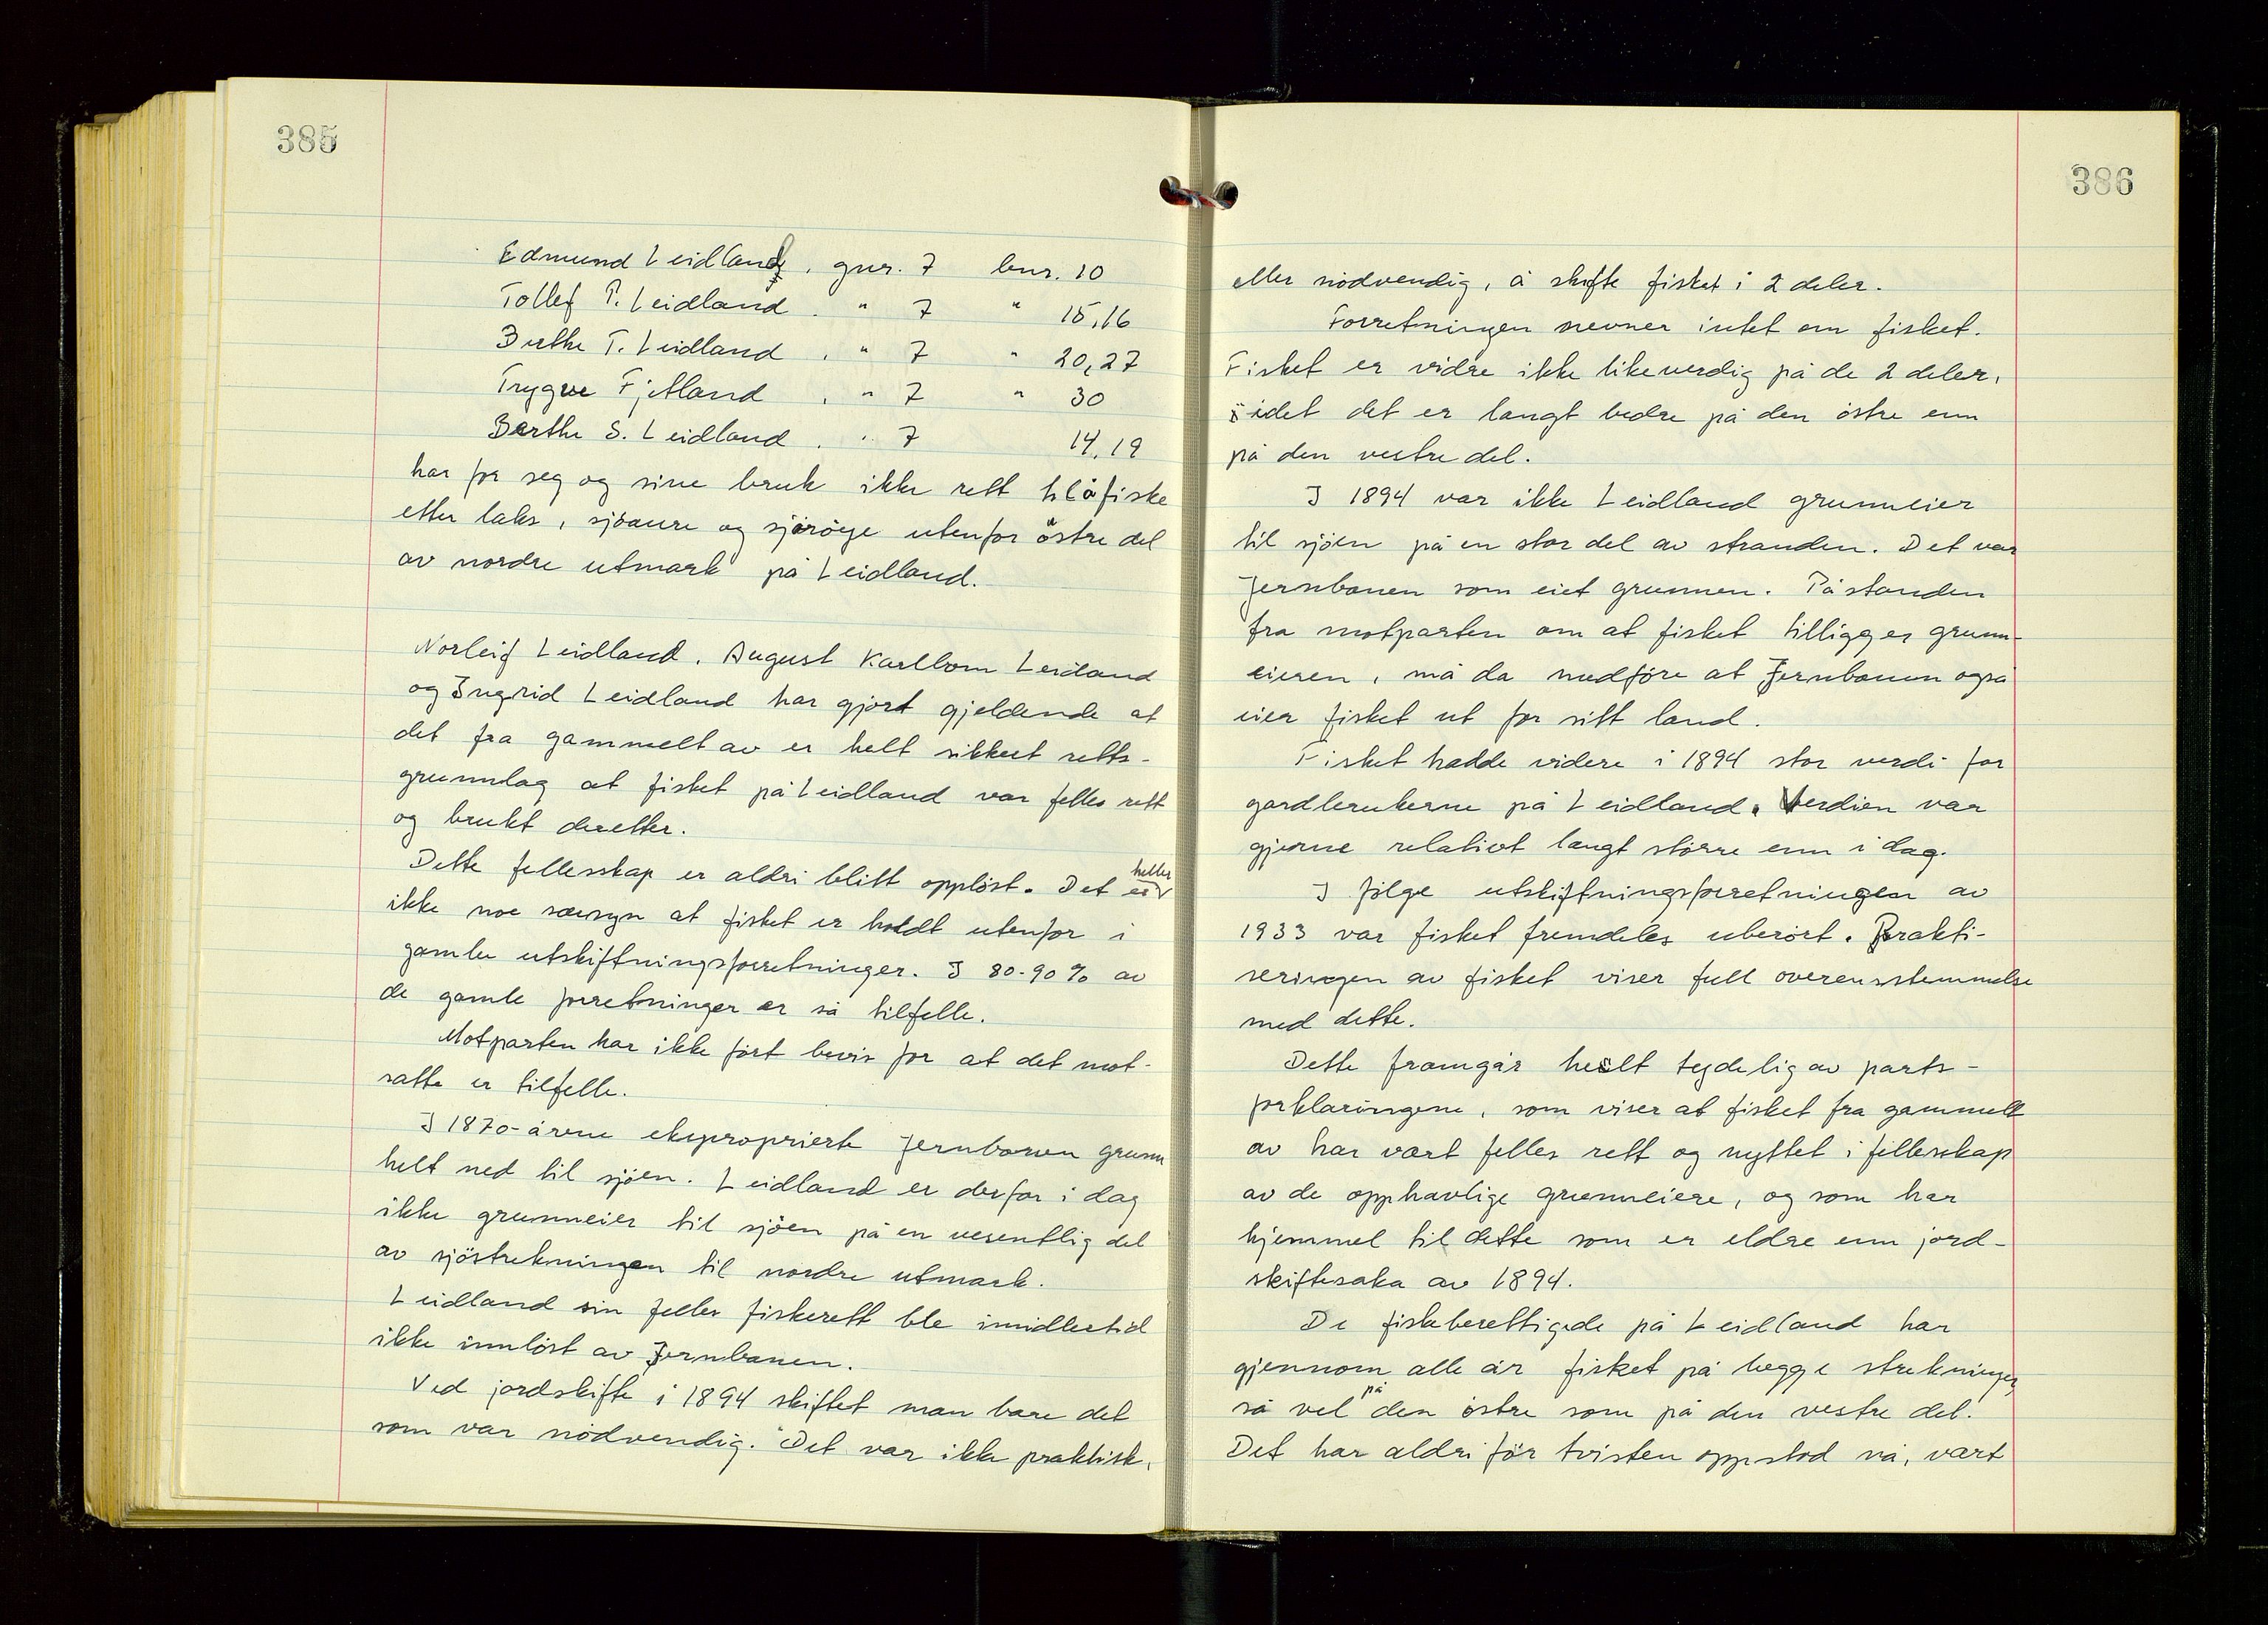 385
Edmund Leidland, gnr. 7 bnr. 10
Tollef P. Leidland, " 7 " 15,16
Berthe T. Leidland, " 7 " 20,27
Trygve Fjetland, " 7 " 30
Berthe S. Leidland, " 7 14,19
har for seg og sine bruk ikke rett til å fiske
etter laks, sjöaure og sjöröye utenfor östre del
av nordre utmark på Leidland.
Norleif Leidland, August Karlbom Leidland
og Ingrid Leidland har gjort gjeldende at
det fra gammelt av er helt sikkert retts-
grunnlag at fisket på Leidland var felles rett
og brukt deretter.
Dette fellesskap er aldri blitt opplöst. Det er heller
ikke noe særsyn at fisket er holdt utenfor i
gamle utskiftningsforretninger. I 80-90 % av
de gamle forretninger er så tilfelle.
Motparten har ikke fört bevis for at det mot-
satte er tilfelle.
I 1870-årene eksproprierte Jernbanen grunn
helt ned til sjöen. Leidland er derfor i dag
ikke grunneier til sjöen på en vesentlig del
av sjöstrekningen til nordre utmark.
Leidland sin felles fiskerett ble imidlertid
ikke innlöst av Jernbanen.
Ved jordskifte i 1894 skiftet man bare det
som var nödvendig. Det var ikke praktisk,
386
eller nödvendig, å skifte fisket i 2 deler.
Forretningen nevner intet om fisket.
Fisket er vidre ikke likeverdig på de 2 deler,
idet det er langt bedre på den östre enn
på den vestre del.
I 1894 var ikke Leidland grunneier
til sjöen på en stor del av stranden. Det var
Jernbanen som eiet grunnen. Påstanden
fra motparten om at fisket tilligger grunn-
eieren, må da medföre at Jernbanen også
eier fisket ut for sitt land.
Fisket hadde videre i 1894 stor verdi for
gardbrukerne på Leidland. Verdien var
gjerne relativt langt större enn i dag.
I fölge utskiftningsforretningen av
1933 var fisket fremdeles uberört. Prakti-
seringen av fisket viser full overensstemmelse
med dette.
Dette framgår helt tydelig av parts-
forklaringene, som viser at fisket fra gammelt
av har vært felles rett og nyttet i fellesskap
av de opphavlige grunneiere, og som har
hjemmel til dette som er eldre enn jord-
skiftesaka av 1894.
De fiskeberettigede på Leidland har
gjennom alle år fisket på begge strekninger,
så vel på den östre som på den vestre del.
Det har aldri för tvisten oppstod nå, vært